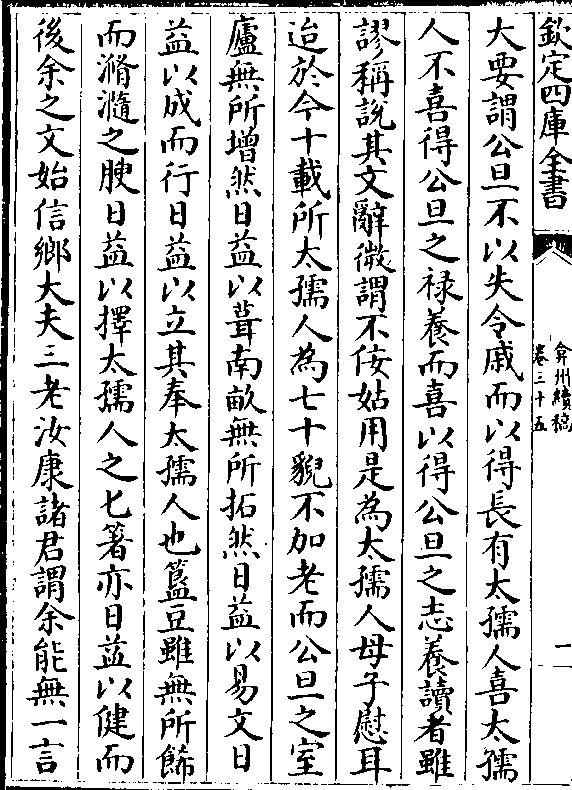 欽定四庫全書
弇州續稿
卷三十五
一
大要謂公旦不以失令戚而以得長有太孺人喜太孺
人不喜得公旦之禄養而喜以得公旦之志養讀者雖
謬稱說其文辭微謂不佞姑用是為太孺人母子慰耳
迨於今十載所太孺人為七十貌不加老而公旦之室
廬無所增然日益以葺南畝無所拓然日益以易文日
益以成而行日益以立其奉太孺人也簋豆雖無所餙
而滫瀡之腴日益以擇太孺人之匕箸亦日益以健而
後余之文始信鄉大夫三老汝康諸君謂余能無一言